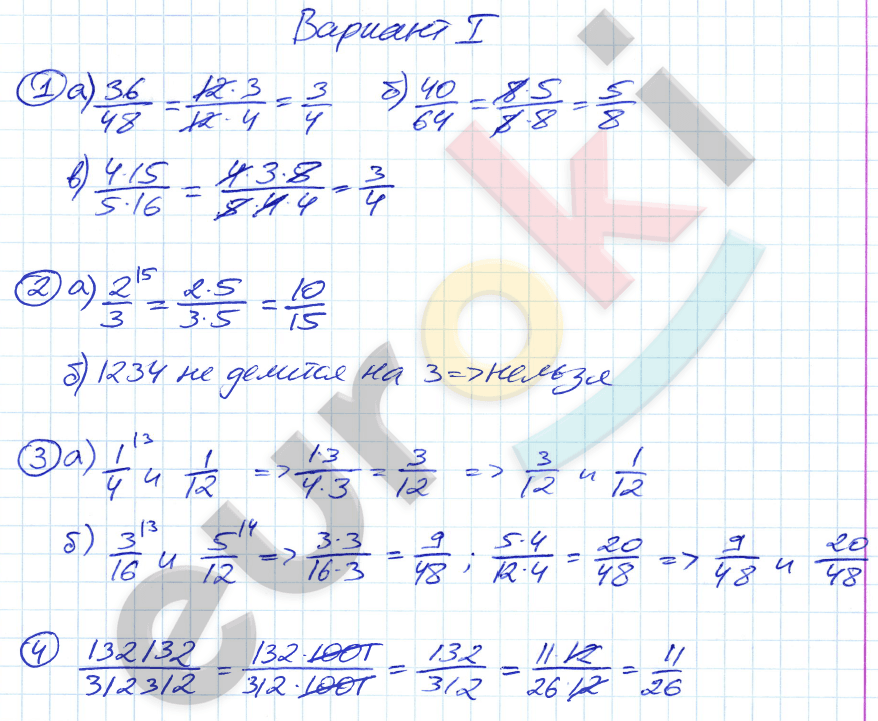 Вариант I
① а) 36/48 = 12·3/12·4 = 3/4 б) 40/64 = 8·5/8·8 = 5/8
в) 4·15/5·16 = 4·3·5/5·4·4 = 3/4
② а) 2/3 |5 = 2·5/3·5 = 10/15
б) 1234 не делится на 3 => нельзя
③ а) 1/4 |3 и 1/12 => 1·3/4·3 = 3/12 => 3/12 и 1/12
б) 3/16 |3 и 5/12 |4 => 3·3/16·3 = 9/48 ; 5·4/12·4 = 20/48 => 9/48 и 20/48
④ 132132/312312 = 132·1001/312·1001 = 132/312 = 11·12/26·12 = 11/26
euroki